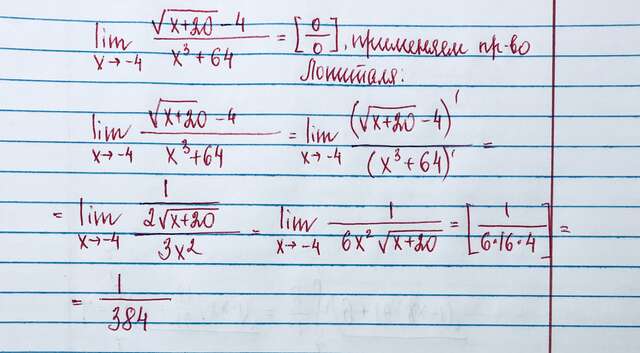 lim x→-4 (√(x+20) - 4)/(x³+64) = [0/0], применяем пр-во
Лопиталя:
lim x→-4 (√(x+20) - 4)/(x³+64) = lim x→-4 (√(x+20) - 4)'/(x³+64)' =
= lim x→-4 (1/(2√(x+20)))/(3x²) = lim x→-4 1/(6x²√(x+20)) = [1/(6·16·4)] =
= 1/384